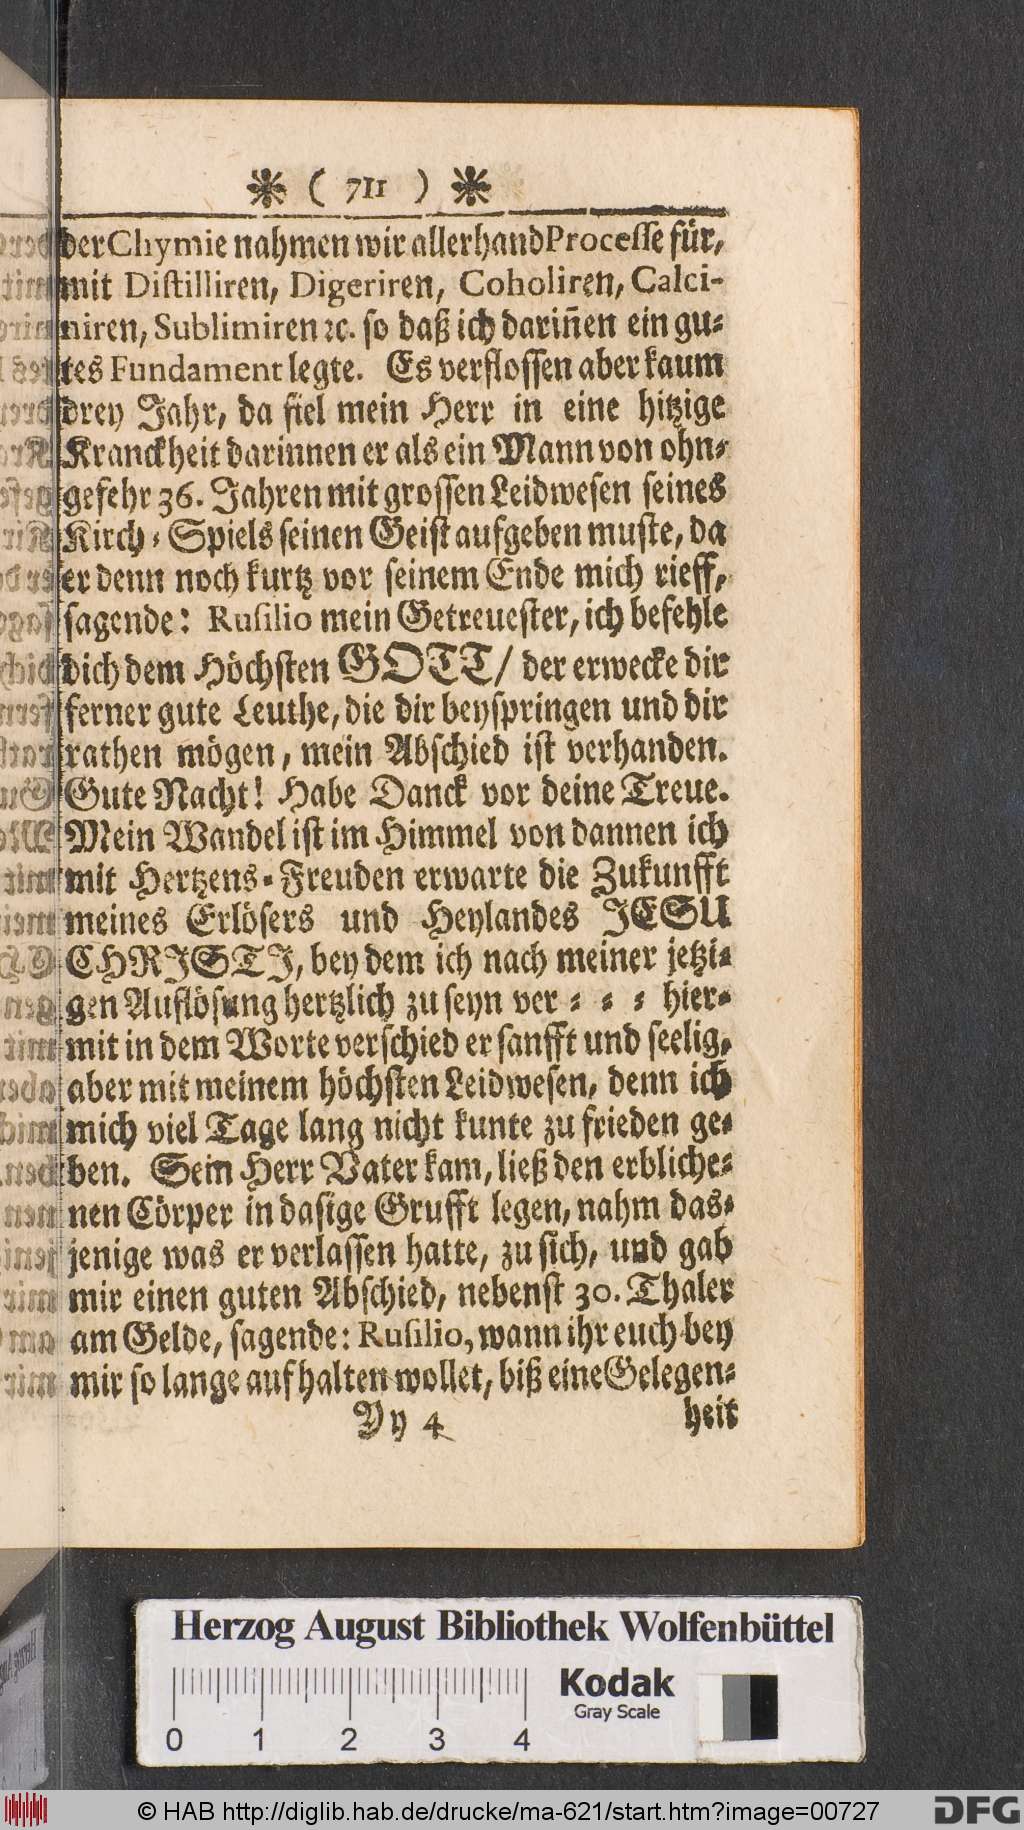 ❋ ( 711 ) ❋
der Chymie nahmen wir allerhand Processe für,
mit Distilliren, Digeriren, Coholiren, Calci-
niren, Sublimiren ꝛc. so daß ich dariñen ein gu-
tes Fundament legte. Es verflossen aber kaum
drey Jahr, da fiel mein Herr in eine hitzige
Kranckheit darinnen er als ein Mann von ohn-
gefehr 36. Jahren mit grossen Leidwesen seines
Kirch-Spiels seinen Geist aufgeben muste, da
er denn noch kurtz vor seinem Ende mich rieff,
sagende: Rusilio mein Getreuester, ich befehle
dich dem Höchsten GOTT/ der erwecke dir
ferner gute Leuthe, die dir beyspringen und dir
rathen mögen, mein Abschied ist verhanden.
Gute Nacht! Habe Danck vor deine Treue.
Mein Wandel ist im Himmel von dannen ich
mit Hertzens-Freuden erwarte die Zukunfft
meines Erlösers und Heylandes JESU
CHRISTJ, bey dem ich nach meiner jetzi-
gen Auflösung hertzlich zu seyn ver - - - hier-
mit in dem Worte verschied er sanfft und seelig,
aber mit meinem höchsten Leidwesen, denn ich
mich viel Tage lang nicht kunte zu frieden ge-
ben. Sein Herr Vater kam, ließ den erbliche-
nen Cörper in dasige Grufft legen, nahm das-
jenige was er verlassen hatte, zu sich, und gab
mir einen guten Abschied, nebenst 30. Thaler
am Gelde, sagende: Rusilio, wann ihr euch bey
mir so lange aufhalten wollet, biß eine Gelegen-
Yy 4 heit
Herzog August Bibliothek Wolfenbüttel
Kodak
Gray Scale
0 1 2 3 4
© HAB http://diglib.hab.de/drucke/ma-621/start.htm?image=00727
DFG